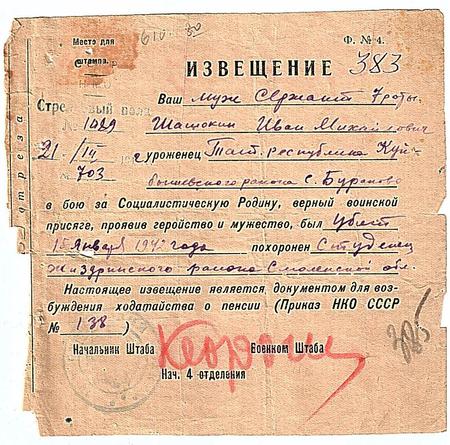 Место для
штампа.
610. 80
Ф. № 4.
ИЗВЕЩЕНИЕ 383
Стрелковый полк
Ваш муж Сержант 7 роты.
№ 1089
Шашокин Иван Михайлович
21 /III
уроженец Тат. республика Куй-
№ 703
бышевского района с. Бураково
в бою за Социалистическую Родину, верный воинской
присяге, проявив геройство и мужество, был Убит
15 Января 1942 года похоронен Студенец
Жиздринского района Смоленской обл.
Настоящее извещение является документом для воз-
буждения ходатайства о пенсии (Приказ НКО СССР
№ 138)
325
Начальник Штаба
Военком Штаба
Нач. 4 отделения
отреза